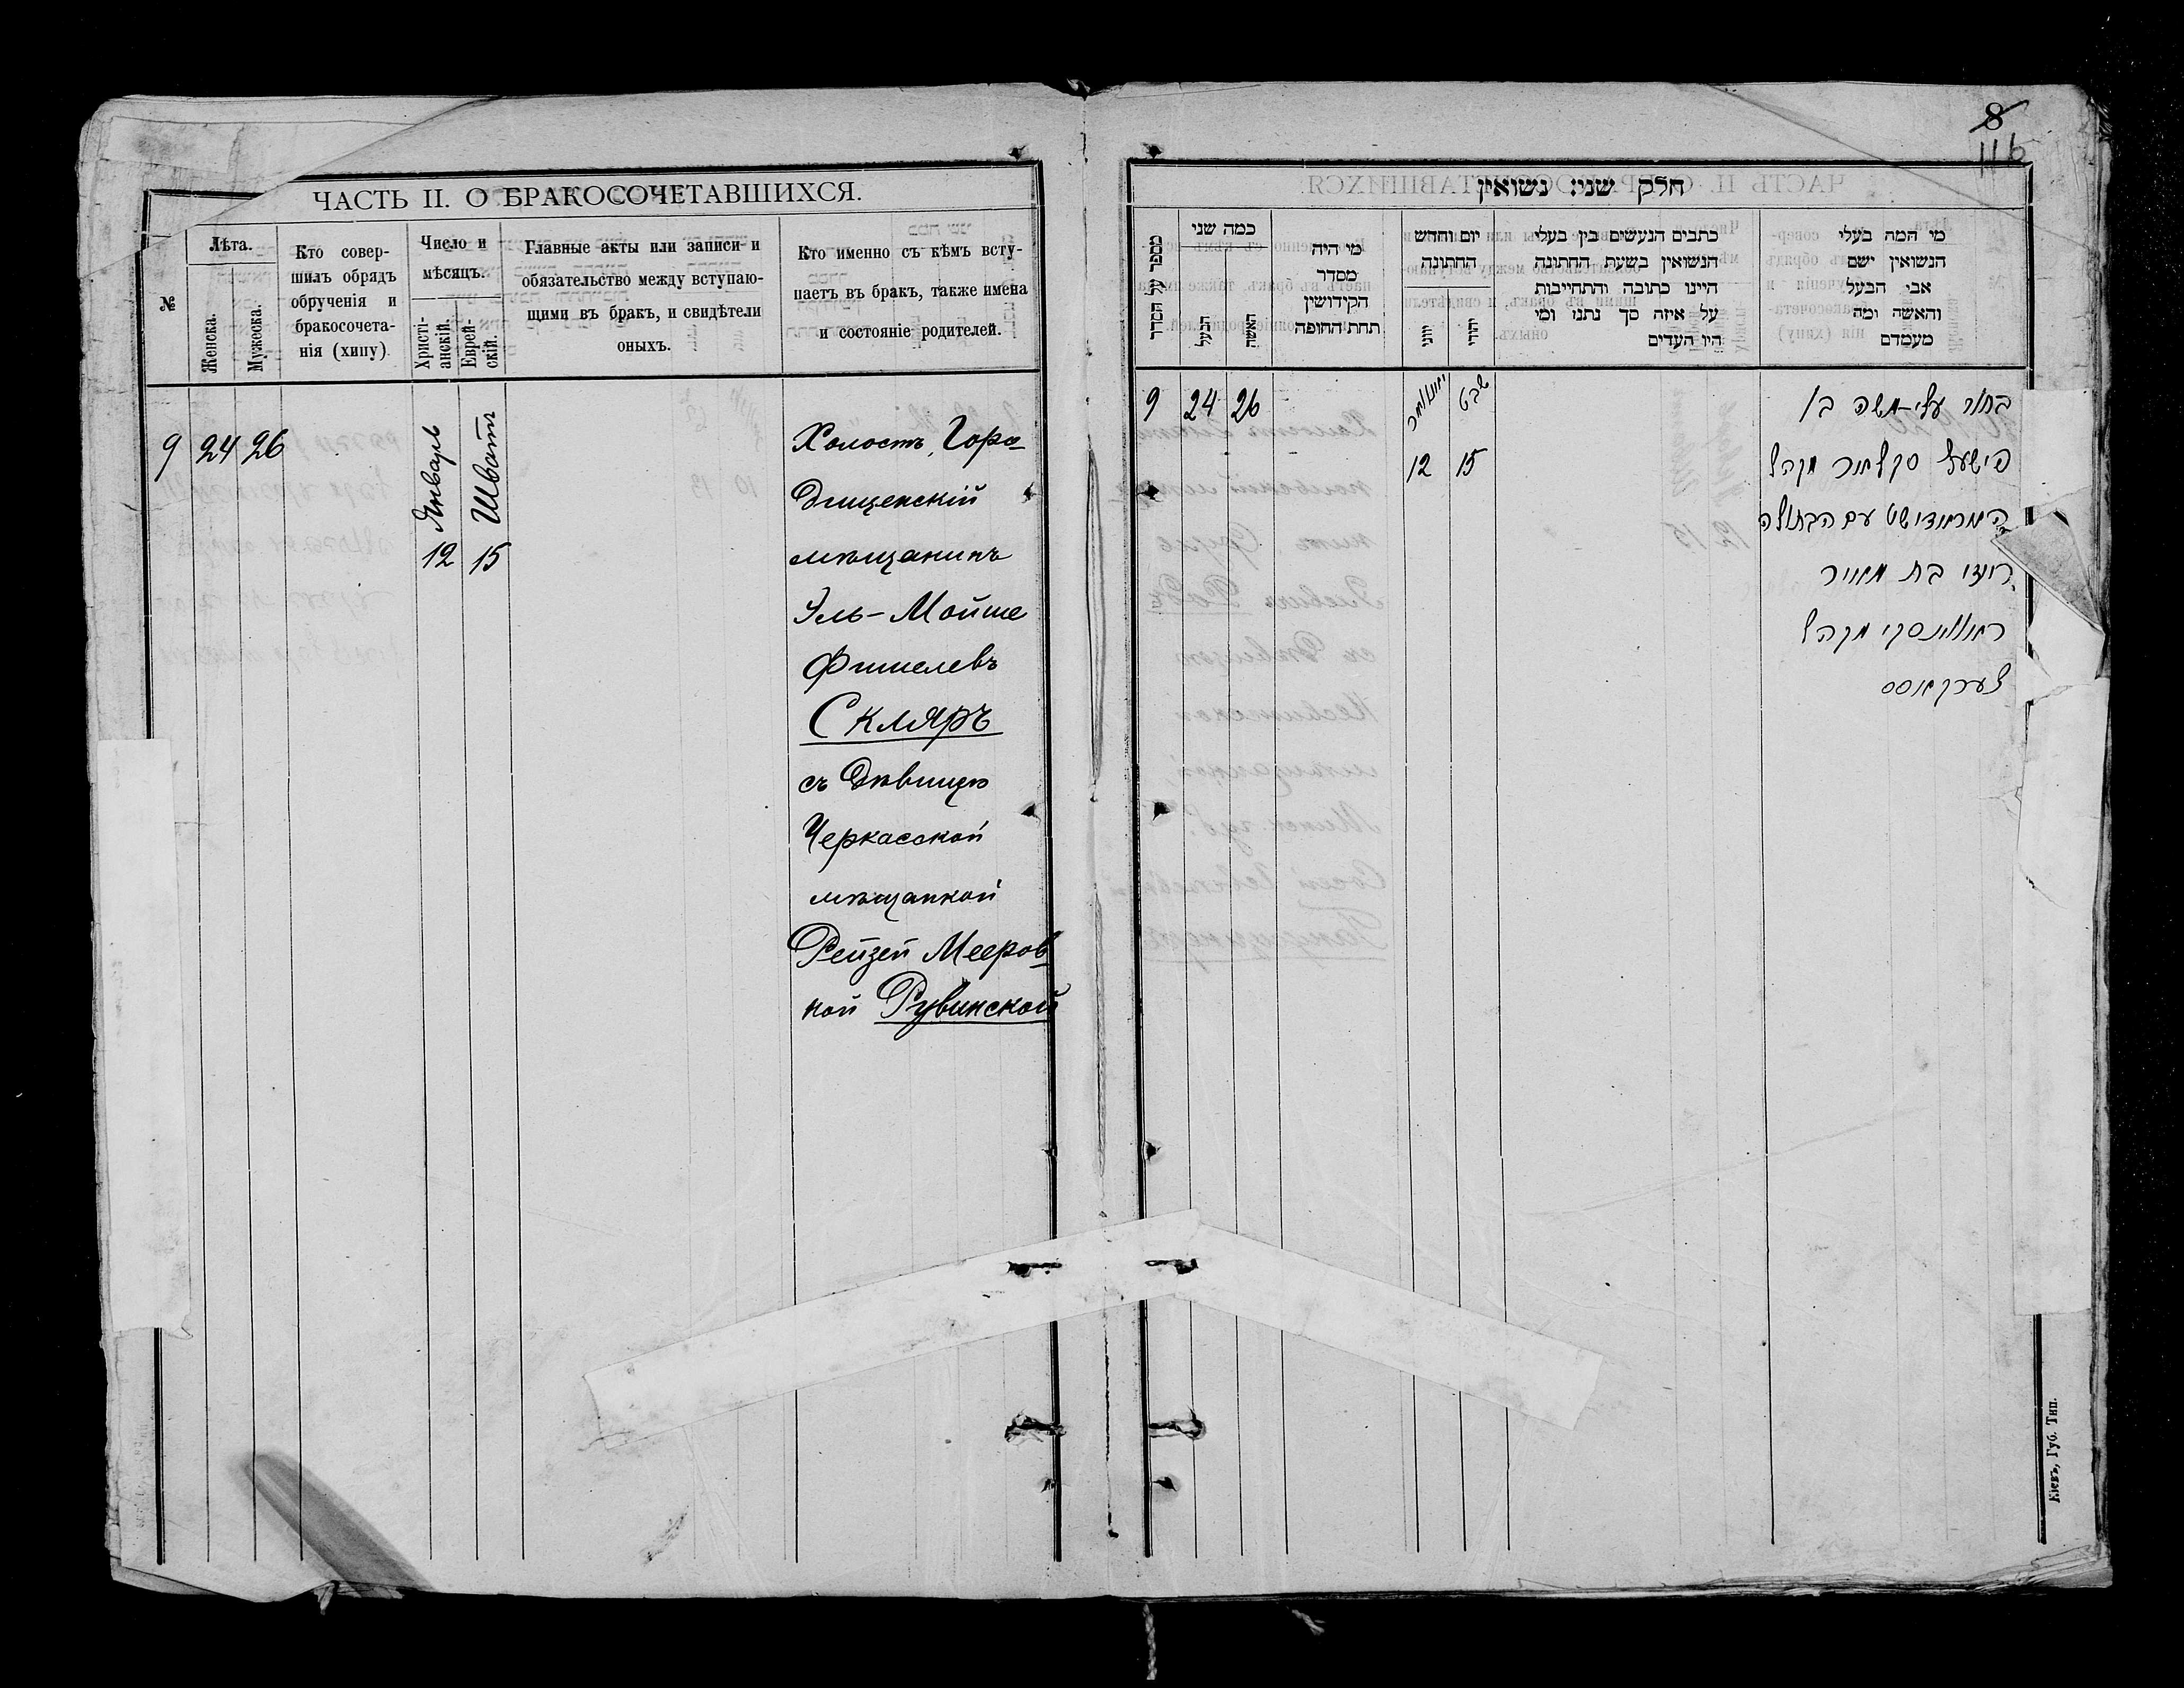 8
116
ЧАСТЬ II. О БРАКОСОЧЕТАВШИХСЯ.
№
Лѣта.
Женска.
Мужеска.
Кто совер-
шилъ обрядъ
обрученія и
бракосочета-
нія (хипу).
Число и
мѣсяцъ.
Христі-
анскій.
Еврей-
скій.
Главные акты или записи и
обязательство между вступаю-
щими въ бракъ, и свидѣтели
оныхъ.
Кто именно съ кѣмъ всту-
паетъ въ бракъ, также имена
и состояніе родителей.
9 24 26
Январь
12
Шватъ
15
Холостъ, Горо-
дищенскій
мѣщанинъ
Эль-Мойше
Фишелевъ
Скляръ
съ Дѣвицею
Черкасской
мѣщанкой
Рейзей Мееров-
ной Рувинской
חלק שני: נשואין
מספר על הסדר
כמה שני
הבעל
האשה
מי היה
מסדר
הקידושין
תחת החופה
יום וחדש
החתונה
יוני
יהודי
כתבים הנעשים בין בעלי
הנשואין בשעת החתונה
היינו כתובה והתחייבות
על איזה סך נתנו ומי
היו העדים
מי המה בעלי
הנשואין ושם
אבי הבעל
והאשה ומה
מעמדם
9 24 26
יאנואר
12
שבט
15
בחור עלי-משה בן
פישעל סקליאר מקהל
עם הבתולה
רייזי בת מאיר
מקהל
טשערקאסס
Кіевъ, Губ. Тип.